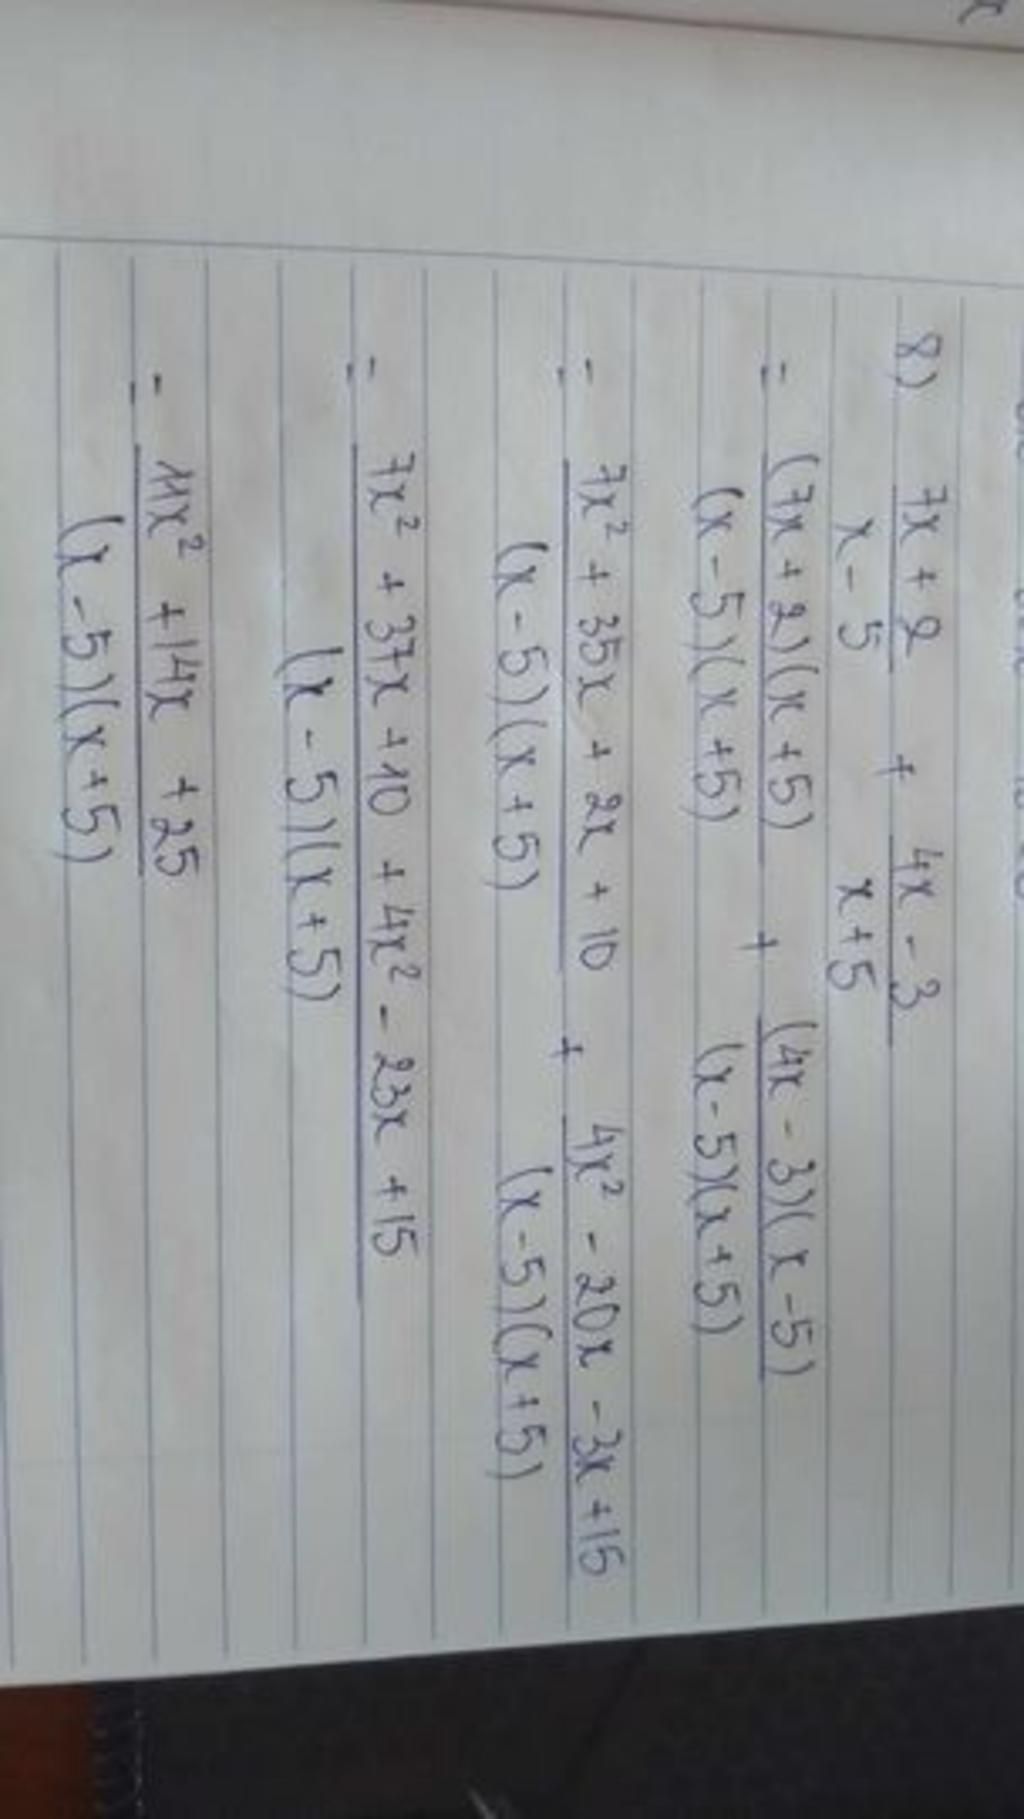 8) (7x + 2)/(x - 5) + (4x - 3)/(x + 5)
= (7x + 2)(x + 5)/(x - 5)(x + 5) + (4x - 3)(x - 5)/(x - 5)(x + 5)
= (7x² + 35x + 2x + 10)/(x - 5)(x + 5) + (4x² - 20x - 3x + 15)/(x - 5)(x + 5)
= (7x² + 37x + 10 + 4x² - 23x + 15)/(x - 5)(x + 5)
= (11x² + 14x + 25)/(x - 5)(x + 5)